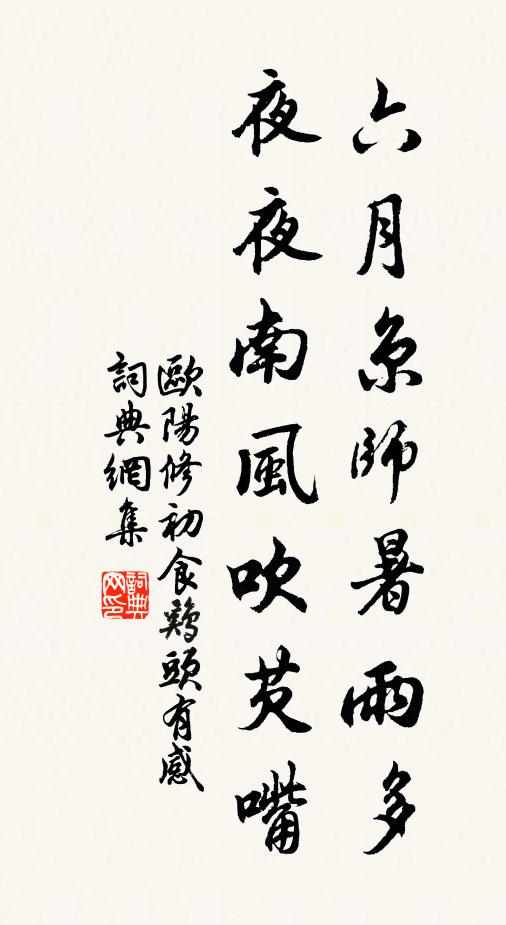 六月京師暑雨多
夜夜南風吹芡嘴
歐陽修初食鶏頭有感
詞典網集
詞典网印